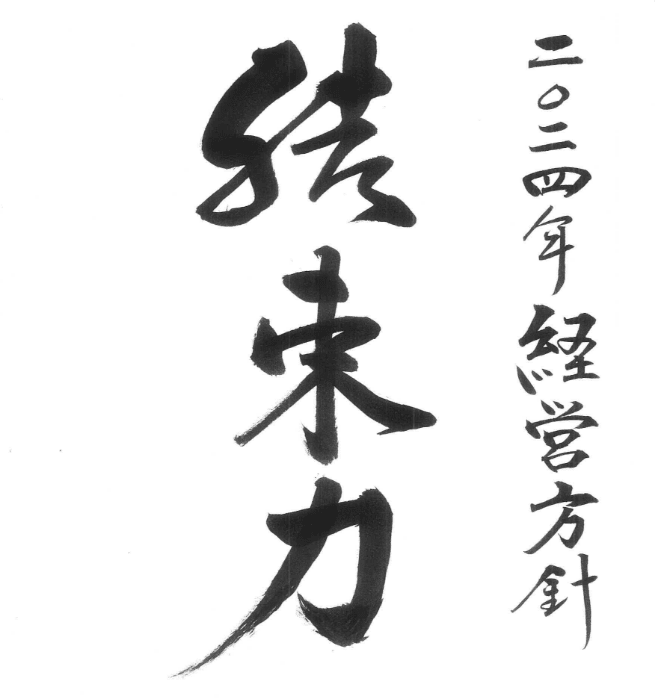 二〇二四年経営方針
結束力